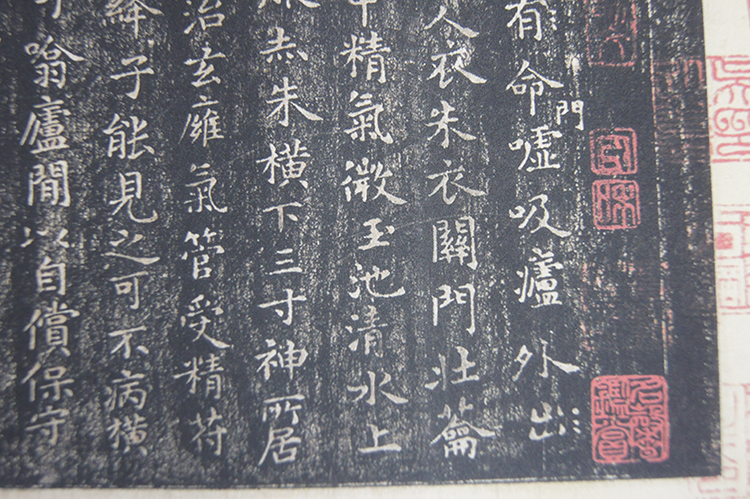 有命門噓吸廬外出
人衣朱衣關門壯蘥
中精氣微玉池清水上
赤朱橫下三寸神所居
治玄癰氣管受精苻
絳子能見之可不病橫
噏廬間以自償保守